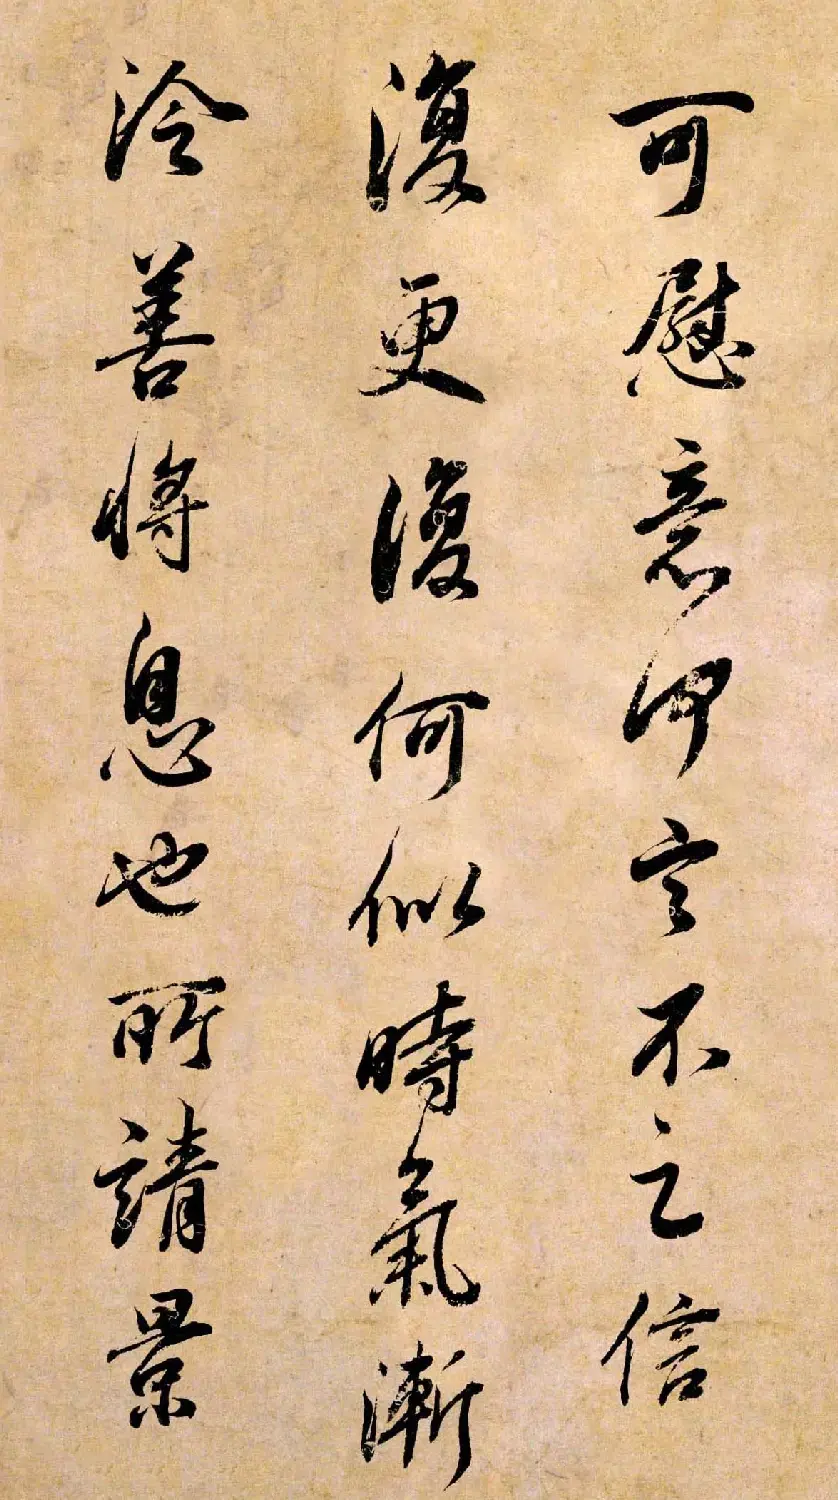 可慰意何言不之信
復更復何似時氣漸
冷善將息也所請景